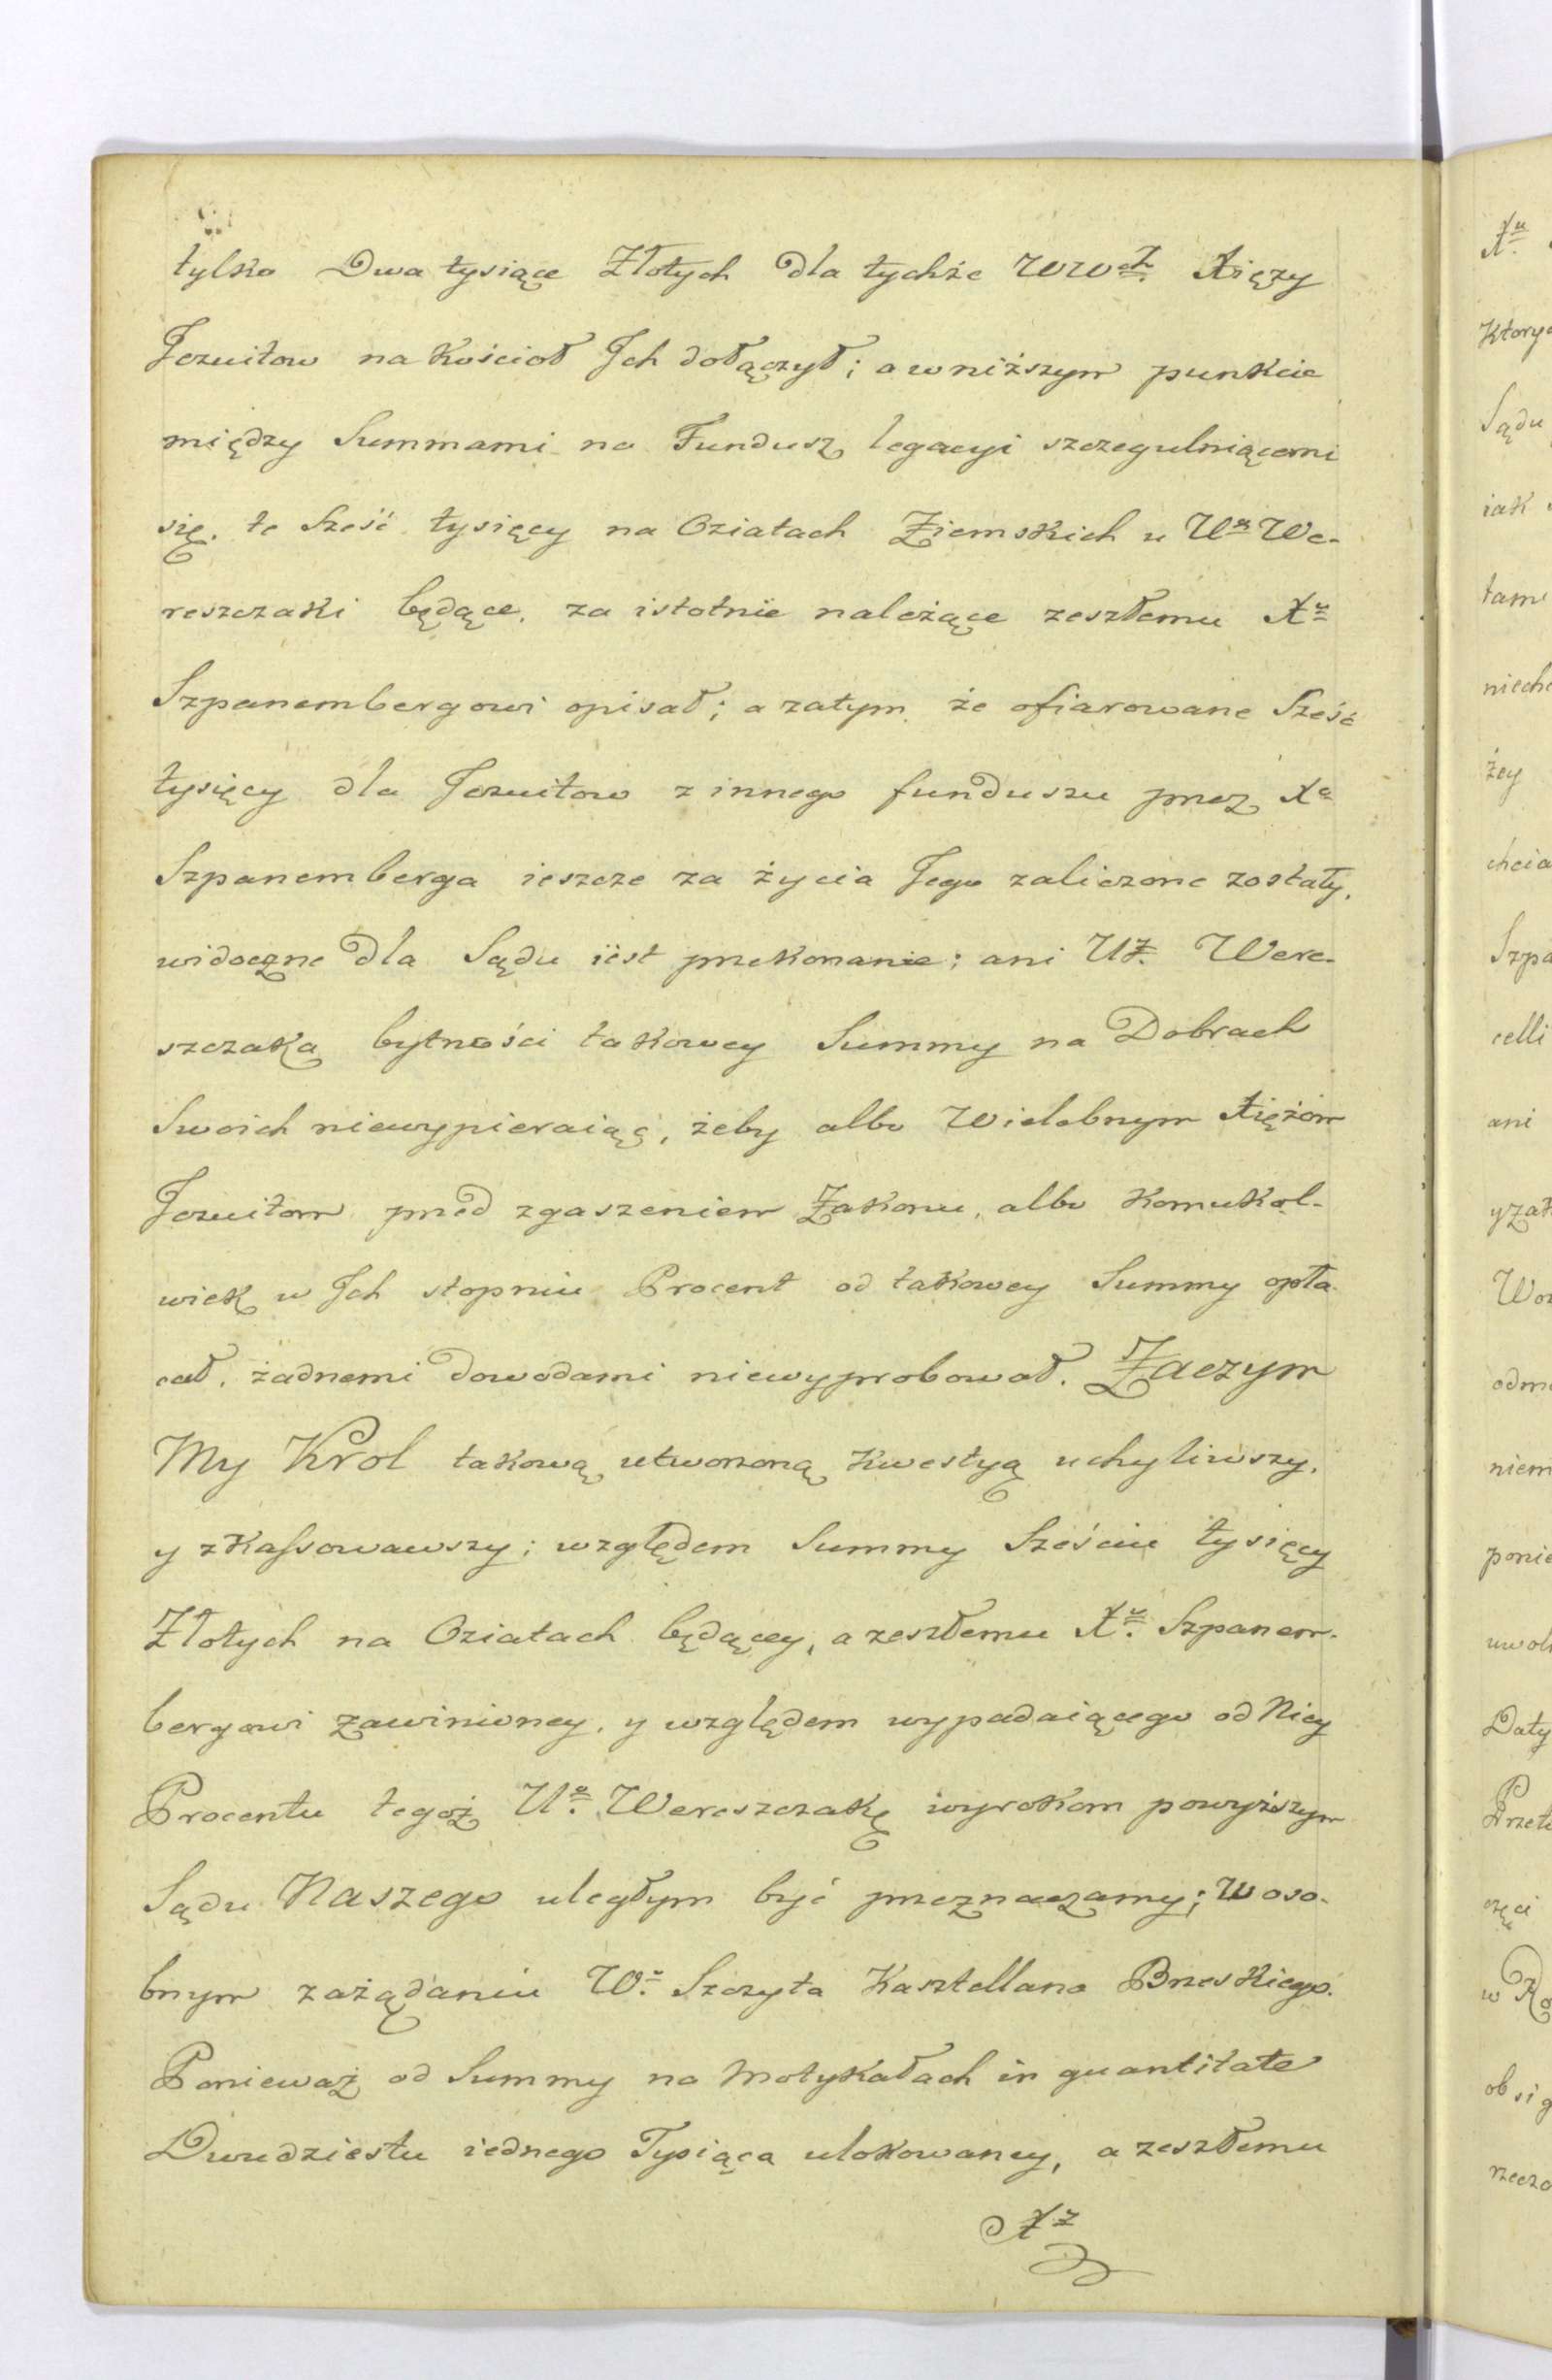 tylko Dwa tysiące Złotych dla tychże WW<sup>ch</sup> Xięży
Jezuitow na Kościoł Jch dołączył; a w niższym punkcie
między Summami na Fundusz legacyi szczegulniącemi
się. te Sześć tysięcy na Oziatach Ziemskich u U<sup>a</sup> We-
reszczaki będące. za istotnie należące zeszłemu X<sup>u</sup>
Szpanembergowi opisał; a zatym że ofiarowane Sześć
tysięcy dla Jezuitow z innego funduszu przez X<sup>a</sup>
Szpanemberga ieszcze za życia Jego zaliczone zostały,
widoczne dla Sądu iest przekonanie; ani U<sup>ż</sup>. Were-
szczaka bytności takowey Summy na Dobrach
Swoich niewypieraiąc, żeby albo Wielebnym Xiężom
Jezuitom przed zgaszeniem Zakonu, albo Komukol-
wiek w Jch stopniu Procent od takowey Summy opła-
cał, żadnemi dowodami niewyprobował. Zaczym
My Krol takową utworzoną kwestyą uchyliwszy,
y zkassowawszy; względem Summy Sześciu tysięcy
Złotych na Oziatach będącey, a zeszłemu X<sup>u</sup>. Szpanem-
bergowi zawinioney, y względem wypadaiącego od Niey
Procentu tegoż U<sup>o</sup>. Wereszczakę wyrokom powyższym
Sądu Naszego uległym być przeznaczamy; W oso-
bnym zażądaniu W<sup>o</sup>. Szczyta Kasztellana Brzeskiego.
Ponieważ od Summy na Motykałach in quantitate
Dwudziestu iednego Tysiąca ulokowaney, a zeszłemu
X<sup>z</sup>
X<sup>u</sup>
Sądu
iak
żey
ani
Daty